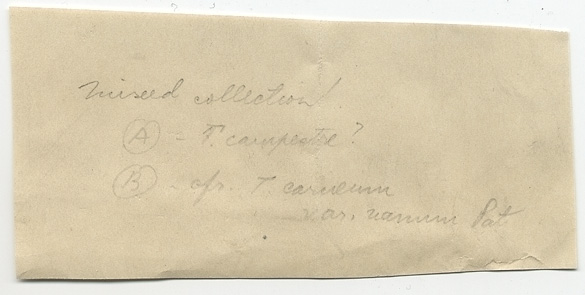 mixed collection!
(A) - T. campestre?
(B) - cfr. T. carneum
var. nanum Pat